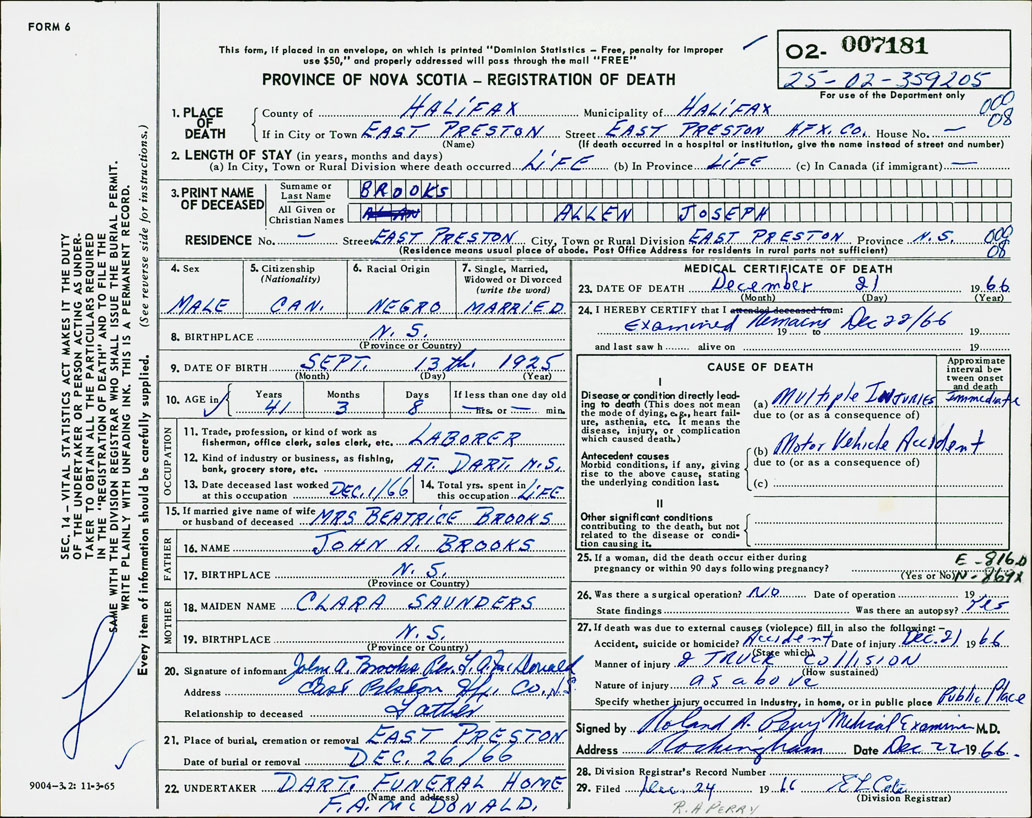 FORM 6
This form, if placed in an envelope, on which is printed "Dominion Statistics – Free, penalty for improper
use $50," and properly addressed will pass through the mail "FREE"
PROVINCE OF NOVA SCOTIA – REGISTRATION OF DEATH
02- 007181
25-02-359205
For use of the Department only
SEC. 14 – VITAL STATISTICS ACT MAKES IT THE DUTY
OF THE UNDERTAKER OR PERSON ACTING AS UNDER-
TAKER TO OBTAIN ALL THE PARTICULARS REQUIRED
IN THE "REGISTRATION OF DEATH" AND TO FILE THE
SAME WITH THE DIVISION REGISTRAR WHO SHALL ISSUE THE BURIAL PERMIT.
WRITE PLAINLY WITH UNFADING INK. THIS IS A PERMANENT RECORD.
Every item of information should be carefully supplied. (See reverse side for instructions.)
1. PLACE OF DEATH
County of HALIFAX Municipality of HALIFAX
000
08
If in City or Town EAST PRESTON Street EAST PRESTON HFX. CO. House No. —
(Name) (If death occurred in a hospital or institution, give the name instead of street and number)
2. LENGTH OF STAY (in years, months and days)
(a) In City, Town or Rural Division where death occurred LIFE (b) In Province LIFE (c) In Canada (if immigrant) —
3. PRINT NAME OF DECEASED
Surname or Last Name BROOKS
All Given or Christian Names ALLAN ALLEN JOSEPH
RESIDENCE No. — Street EAST PRESTON City, Town or Rural Division EAST PRESTON Province N.S.
000
08
(Residence means usual place of abode. Post Office Address for residents in rural parts not sufficient)
4. Sex
MALE
5. Citizenship (Nationality)
CAN.
6. Racial Origin
NEGRO
7. Single, Married, Widowed or Divorced (write the word)
MARRIED
8. BIRTHPLACE N.S.
(Province or Country)
9. DATE OF BIRTH SEPT. 13th. 1925
(Month) (Day) (Year)
10. AGE in Years Months Days If less than one day old
41 3 8 — hrs. or — min.
OCCUPATION
11. Trade, profession, or kind of work as
fisherman, office clerk, sales clerk, etc. LABORER
12. Kind of industry or business, as fishing,
bank, grocery store, etc. AT DART. N.S.
13. Date deceased last worked at this occupation DEC. 1/66
14. Total yrs. spent in this occupation LIFE
15. If married give name of wife
or husband of deceased MRS BEATRICE BROOKS
FATHER
16. NAME JOHN A. BROOKS
17. BIRTHPLACE N.S.
(Province or Country)
MOTHER
18. MAIDEN NAME CLARA SAUNDERS
19. BIRTHPLACE N.S.
(Province or Country)
20. Signature of informant John A. Brooks Per. F.A. McDonald
Address East Preston Hfx. Co. N.S.
Relationship to deceased Father
21. Place of burial, cremation or removal EAST PRESTON
Date of burial or removal DEC. 26/66
22. UNDERTAKER DART. FUNERAL HOME
(Name and address)
F.A. McDONALD.
9004-3.2: 11-3-65
MEDICAL CERTIFICATE OF DEATH
23. DATE OF DEATH December 21 1966
(Month) (Day) (Year)
24. I HEREBY CERTIFY that I attended deceased from:
Examined Remains Dec 22/66
19 to 19
and last saw h alive on 19
CAUSE OF DEATH
Approximate interval between onset and death
I
Disease or condition directly lead-
ing to death (This does not mean
the mode of dying, e.g., heart fail-
ure, asthenia, etc. It means the
disease, injury, or complication
which caused death.)
(a) Multiple INJURIES Immediate
due to (or as a consequence of)
Antecedent causes
Morbid conditions, if any, giving
rise to the above cause, stating
the underlying condition last.
(b) Motor Vehicle Accident
due to (or as a consequence of)
(c)
II
Other significant conditions
contributing to the death, but not
related to the disease or condi-
tion causing it.
25. If a woman, did the death occur either during
pregnancy or within 90 days following pregnancy?
(Yes or No)
E-816.0
N-869X
26. Was there a surgical operation? NO Date of operation 19
State findings Was there an autopsy? Yes
27. If death was due to external causes (violence) fill in also the following:–
Accident, suicide or homicide? Accident Date of injury Dec. 21 1966
(State which)
Manner of injury 2 TRUCK COLLISION
(How sustained)
Nature of injury as above
Specify whether injury occurred in Industry, in home, or in public place Public Place
Signed by Roland A. Perry Medical Examiner M.D.
Address Rockingham Date Dec 22 1966.
28. Division Registrar's Record Number
29. Filed Dec. 24 1966
(Division Registrar)
R.A PERRY